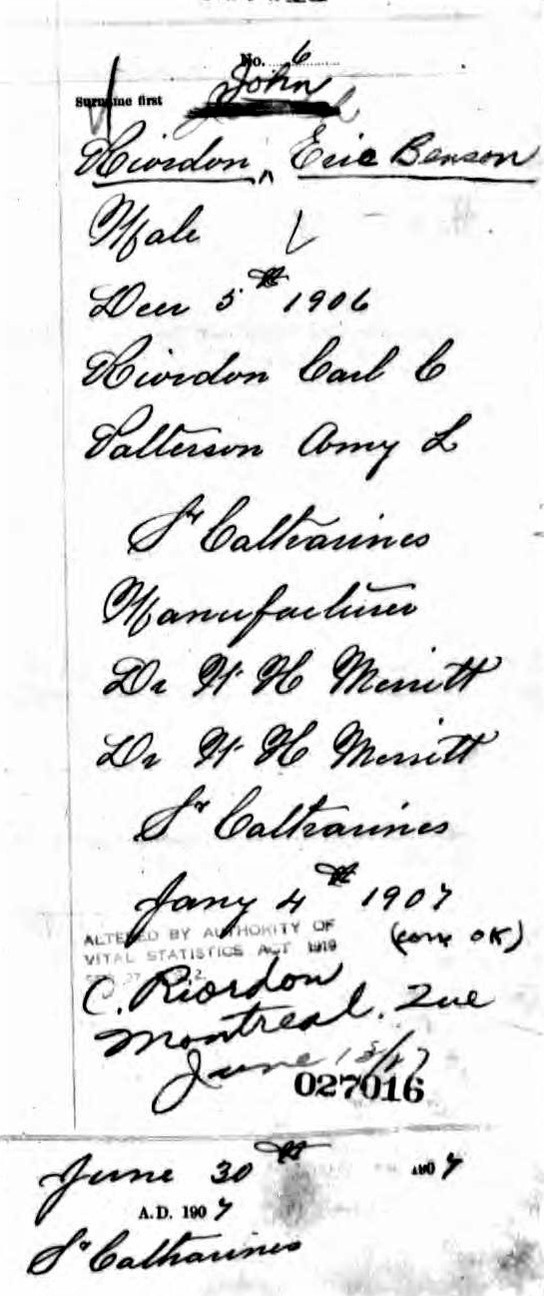 No. 6
John
Surname first
Riordon, Eric Benson
Male
Decr 5th 1906
Riordon Carl C
Patterson Amy L
St Catharines
Manufacturer
Dr W H Merritt
Dr W H Merritt
St Catharines
Jany 4th 1907
ALTERED BY AUTHORITY OF
(corr OK)
VITAL STATISTICS ACT 1919
C. Riordon
Montreal. Que
June
027016
June 30th 1907
A.D. 1907
St Catharines